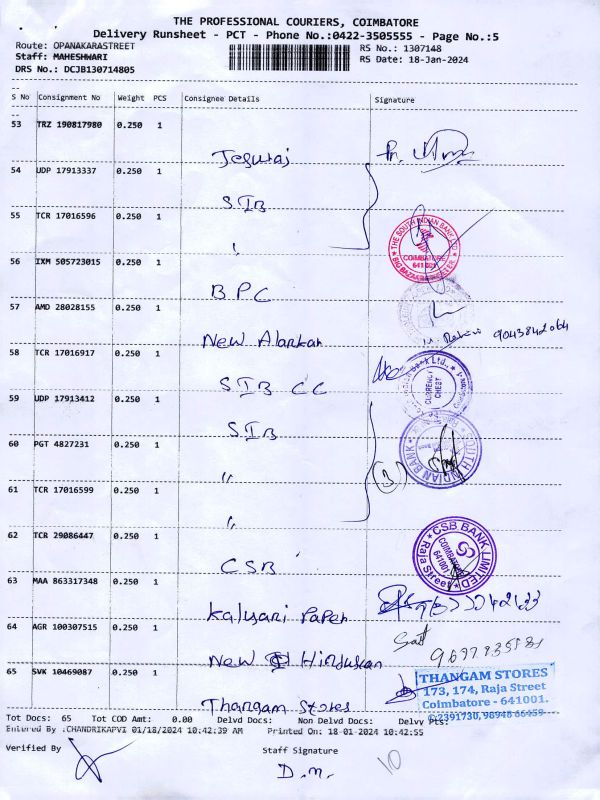 THE PROFESSIONAL COURIERS, COIMBATORE
Delivery Runsheet - PCT - Phone No.:0422-3505555 - Page No.:5
Route: OPANAKARASTREET RS No.: 1307148
Staff: MAHESHWARI RS Date: 18-Jan-2024
DRS No.: DCJB130714805
S No Consignment No Weight PCS Consignee Details Signature
53 TRZ 190817980 0.250 1
Jeguraj
54 UDP 17913337 0.250 1
SIB
55 TCR 17016596 0.250 1
"
THE SOUTH INDIAN BANK
COIMBATORE
641 001
56 IXM 505723015 0.250 1
BPC
57 AMD 28028155 0.250 1
New Alankar 9043842064
58 TCR 17016917 0.250 1
SIB CC
CURRENCY CHEST
59 UDP 17913412 0.250 1
SIB
SOUTH INDIAN BANK
60 PGT 4827231 0.250 1
" 3
61 TCR 17016599 0.250 1
"
62 TCR 29086447 0.250 1
CSB
CSB BANK LIMITED
COIMBATORE
641001
Raja Street
63 MAA 863317348 0.250 1
Kalyani Paper
64 AGR 100307515 0.250 1
New Hindustan
65 SVK 10469087 0.250 1
Thangam Stores
THANGAM STORES
173, 174, Raja Street
Coimbatore - 641001.
✆:2391730, 98948 66459
Tot Docs: 65 Tot COD Amt: 0.00 Delvd Docs: Non Delvd Docs: Delvy Pts:
Entered By :CHANDRIKAPVI 01/18/2024 10:42:39 AM Printed On: 18-01-2024 10:42:55
Verified By Staff Signature
D.M. 10